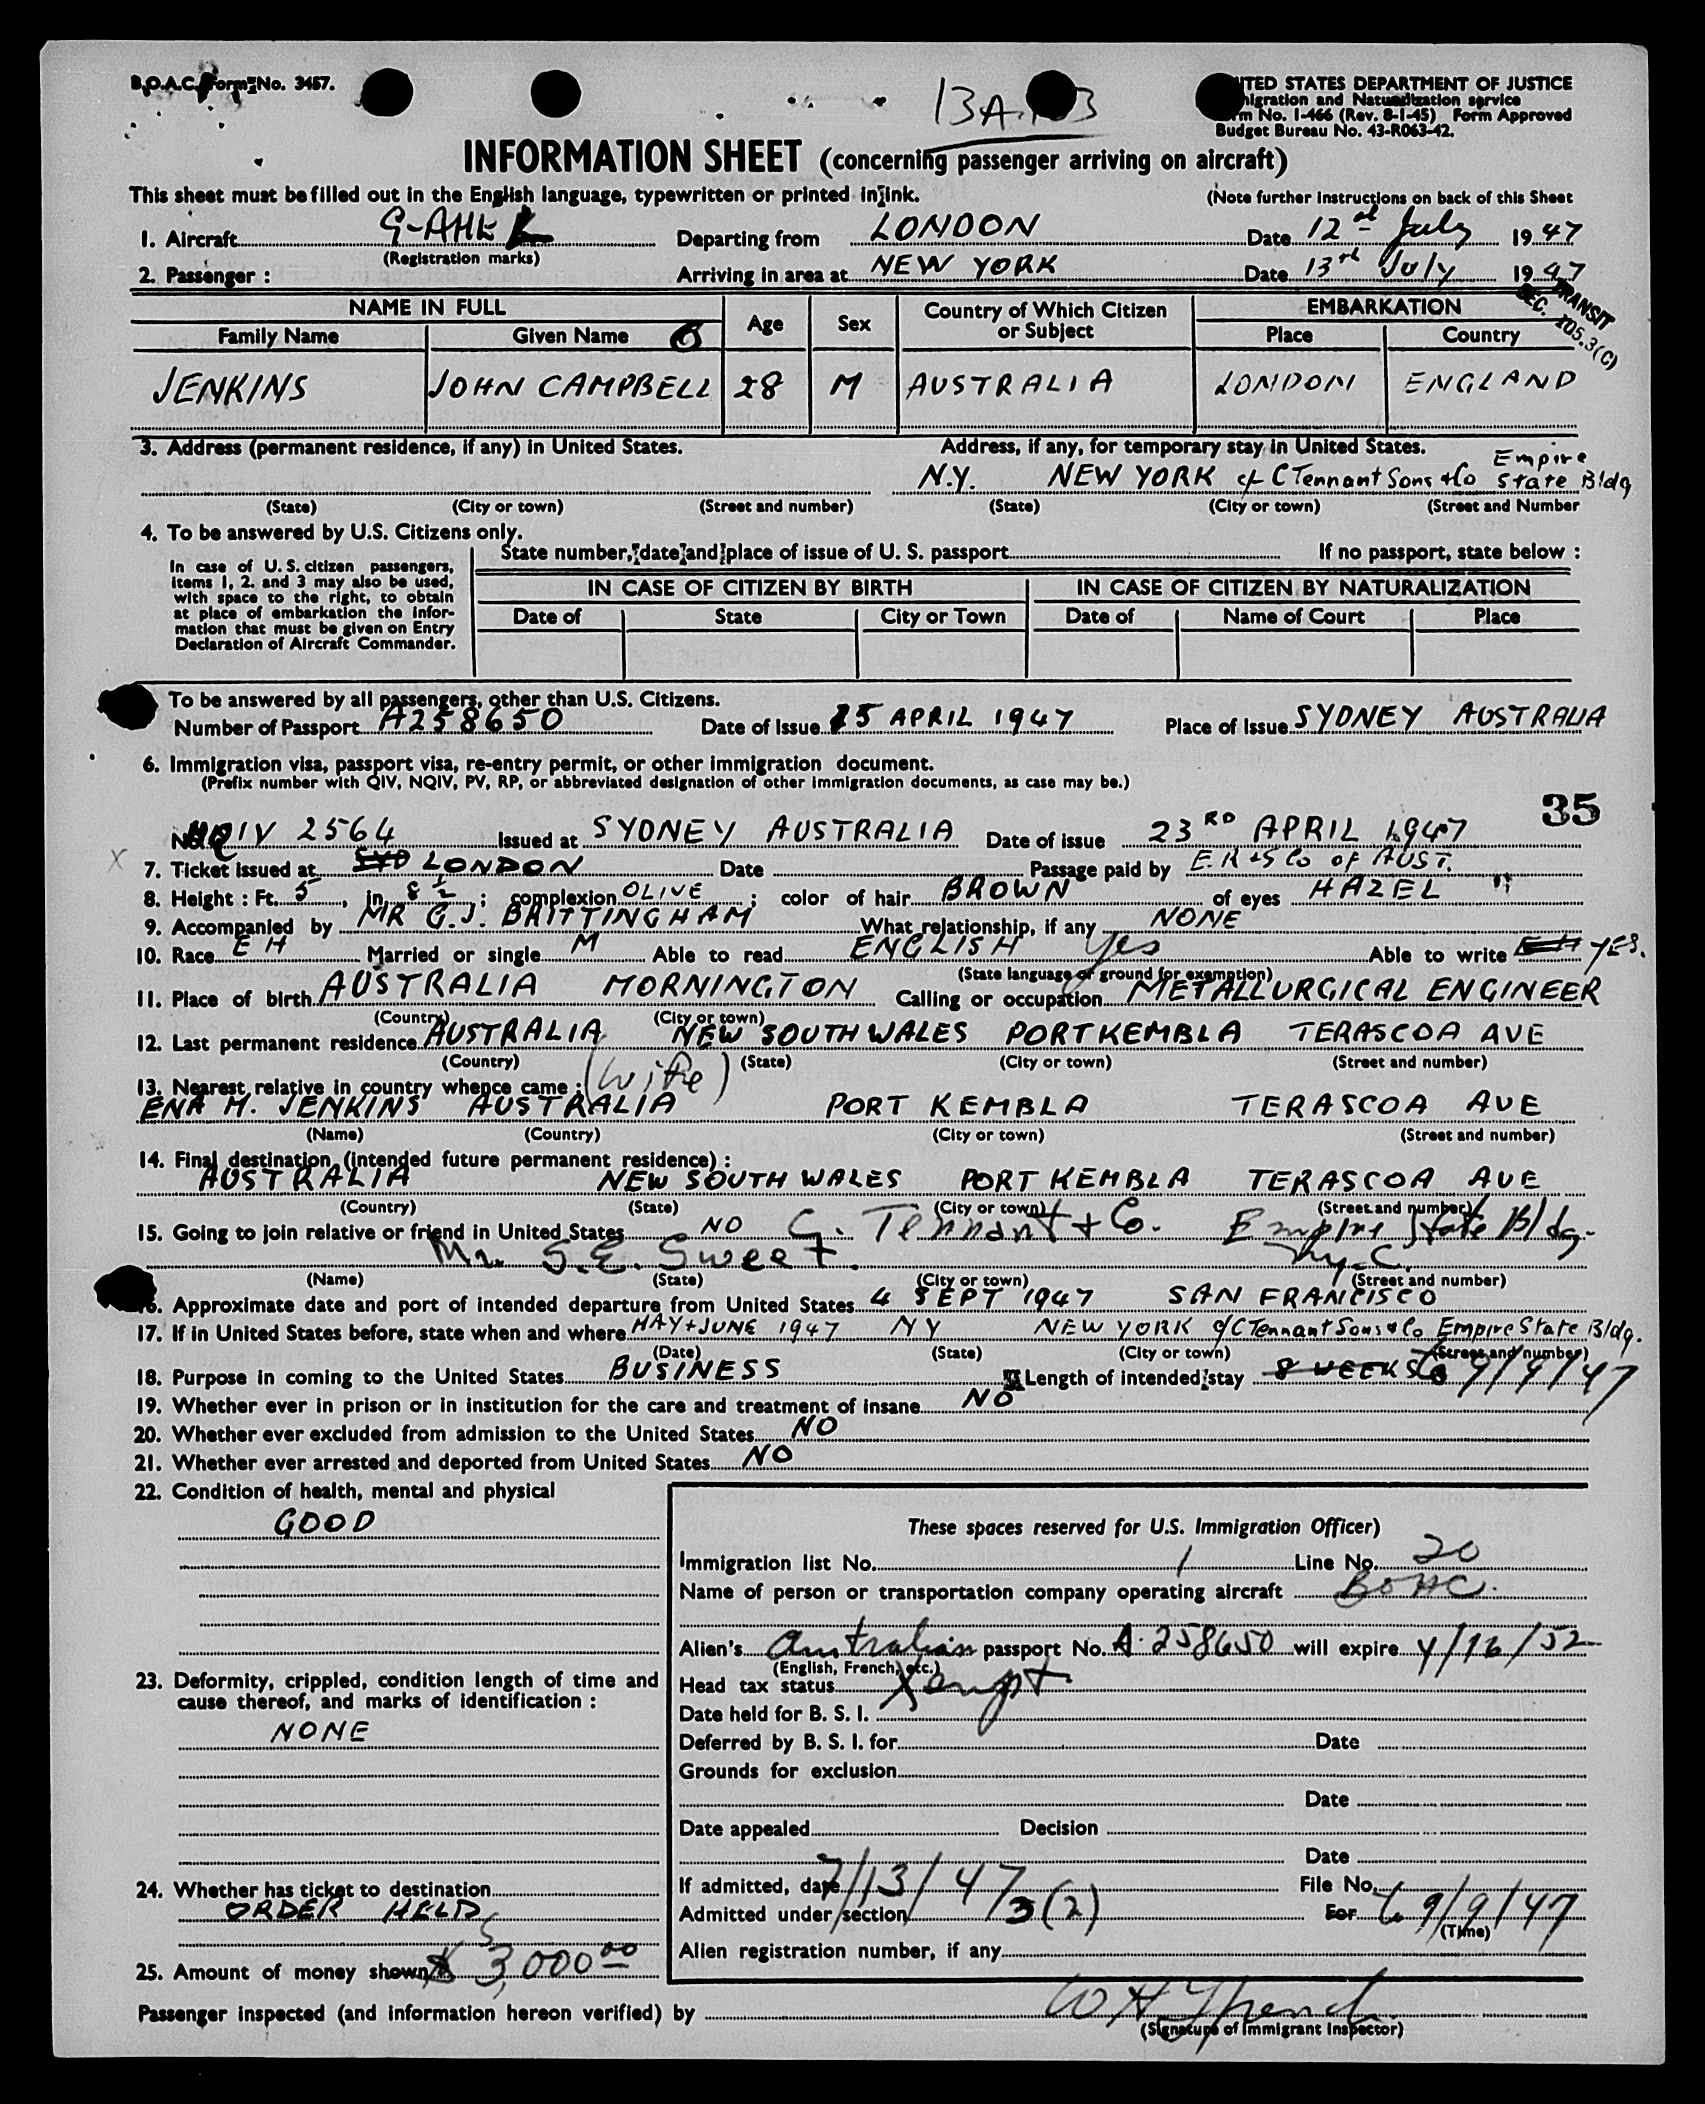 B.O.A.C. Form No. 3457.
13A.
UNITED STATES DEPARTMENT OF JUSTICE
Immigration and Naturalization service
Form No. I-466 (Rev. 8-1-45) Form Approved
Budget Bureau No. 43-R063-42.
INFORMATION SHEET (concerning passenger arriving on aircraft)
This sheet must be filled out in the English language, typewritten or printed in ink. (Note further instructions on back of this Sheet
1. Aircraft G-AHE Departing from LONDON Date 12 July 1947
(Registration marks)
2. Passenger : Arriving in area at NEW YORK Date 13th July 1947
TRANSIT
SEC. 105.3(C)
NAME IN FULL Age Sex Country of Which Citizen or Subject EMBARKATION
Family Name Given Name Place Country
JENKINS JOHN CAMPBELL 28 M AUSTRALIA LONDON ENGLAND
3. Address (permanent residence, if any) in United States. Address, if any, for temporary stay in United States.
N.Y. NEW YORK c/- C Tennant Sons & Co Empire State Bldg
(State) (City or town) (Street and number) (State) (City or town) (Street and Number
4. To be answered by U.S. Citizens only.
State number, date and place of issue of U. S. passport If no passport, state below :
In case of U. S. citizen passengers,
items 1, 2. and 3 may also be used,
with space to the right, to obtain
at place of embarkation the infor-
mation that must be given on Entry
Declaration of Aircraft Commander.
IN CASE OF CITIZEN BY BIRTH IN CASE OF CITIZEN BY NATURALIZATION
Date of State City or Town Date of Name of Court Place
To be answered by all passengers, other than U.S. Citizens.
Number of Passport A258650 Date of Issue 15 APRIL 1947 Place of Issue SYDNEY AUSTRALIA
6. Immigration visa, passport visa, re-entry permit, or other immigration document.
(Prefix number with QIV, NQIV, PV, RP, or abbreviated designation of other immigration documents, as case may be.)
35
No. NQIV 2564 Issued at SYDNEY AUSTRALIA Date of issue 23RD APRIL 1947
7. Ticket issued at SYD LONDON Date Passage paid by E.R +S Co OF AUST.
8. Height : Ft. 5, in. 8 ½ ; complexion OLIVE ; color of hair BROWN of eyes HAZEL
9. Accompanied by MR G.J. BRITTINGHAM What relationship, if any NONE
10. Race E H Married or single M Able to read ENGLISH Yes Able to write EH YES.
(State language or ground for exemption)
11. Place of birth AUSTRALIA MORNINGTON Calling or occupation METALLURGICAL ENGINEER
(Country) (City or town)
12. Last permanent residence AUSTRALIA NEW SOUTH WALES PORT KEMBLA TERASCOA AVE
(Country) (State) (City or town) (Street and number)
13. Nearest relative in country whence came : (Wife)
ENA M. JENKINS AUSTRALIA PORT KEMBLA TERASCOA AVE
(Name) (Country) (City or town) (Street and number)
14. Final destination (intended future permanent residence) :
AUSTRALIA NEW SOUTH WALES PORT KEMBLA TERASCOA AVE
(Country) (State) (City or town) (Street and number)
15. Going to join relative or friend in United States NO C. Tennant & Co. Empire State Bldg.
Mr. S.E. Sweet. N.Y.C.
(Name) (State) (City or town) (Street and number)
16. Approximate date and port of intended departure from United States 4 SEPT 1947 SAN FRANCISCO
17. If in United States before, state when and where MAY + JUNE 1947 NY NEW YORK c/ C Tennant Sons & Co Empire State Bldg.
(Date) (State) (City or town) (Street and number)
18. Purpose in coming to the United States BUSINESS Length of intended stay 8 WEEKS to 9/9/47
19. Whether ever in prison or in institution for the care and treatment of insane NO
20. Whether ever excluded from admission to the United States NO
21. Whether ever arrested and deported from United States NO
22. Condition of health, mental and physical
GOOD
23. Deformity, crippled, condition length of time and
cause thereof, and marks of identification :
NONE
24. Whether has ticket to destination
ORDER HELD
25. Amount of money shown $ 3,000.00
These spaces reserved for U.S. Immigration Officer)
Immigration list No. 1 Line No. 20
Name of person or transportation company operating aircraft BOAC.
Alien's Australian passport No. A.258650 will expire 4/16/52
(English, French, etc.)
Head tax status Xempt
Date held for B. S. I.
Deferred by B. S. I. for Date
Grounds for exclusion
Date
Date appealed Decision
Date
If admitted, date 7/13/47 File No.
Admitted under section 3(2) For to 9/9/47
(Time)
Alien registration number, if any
Passenger inspected (and information hereon verified) by
(Signature of Immigrant Inspector)